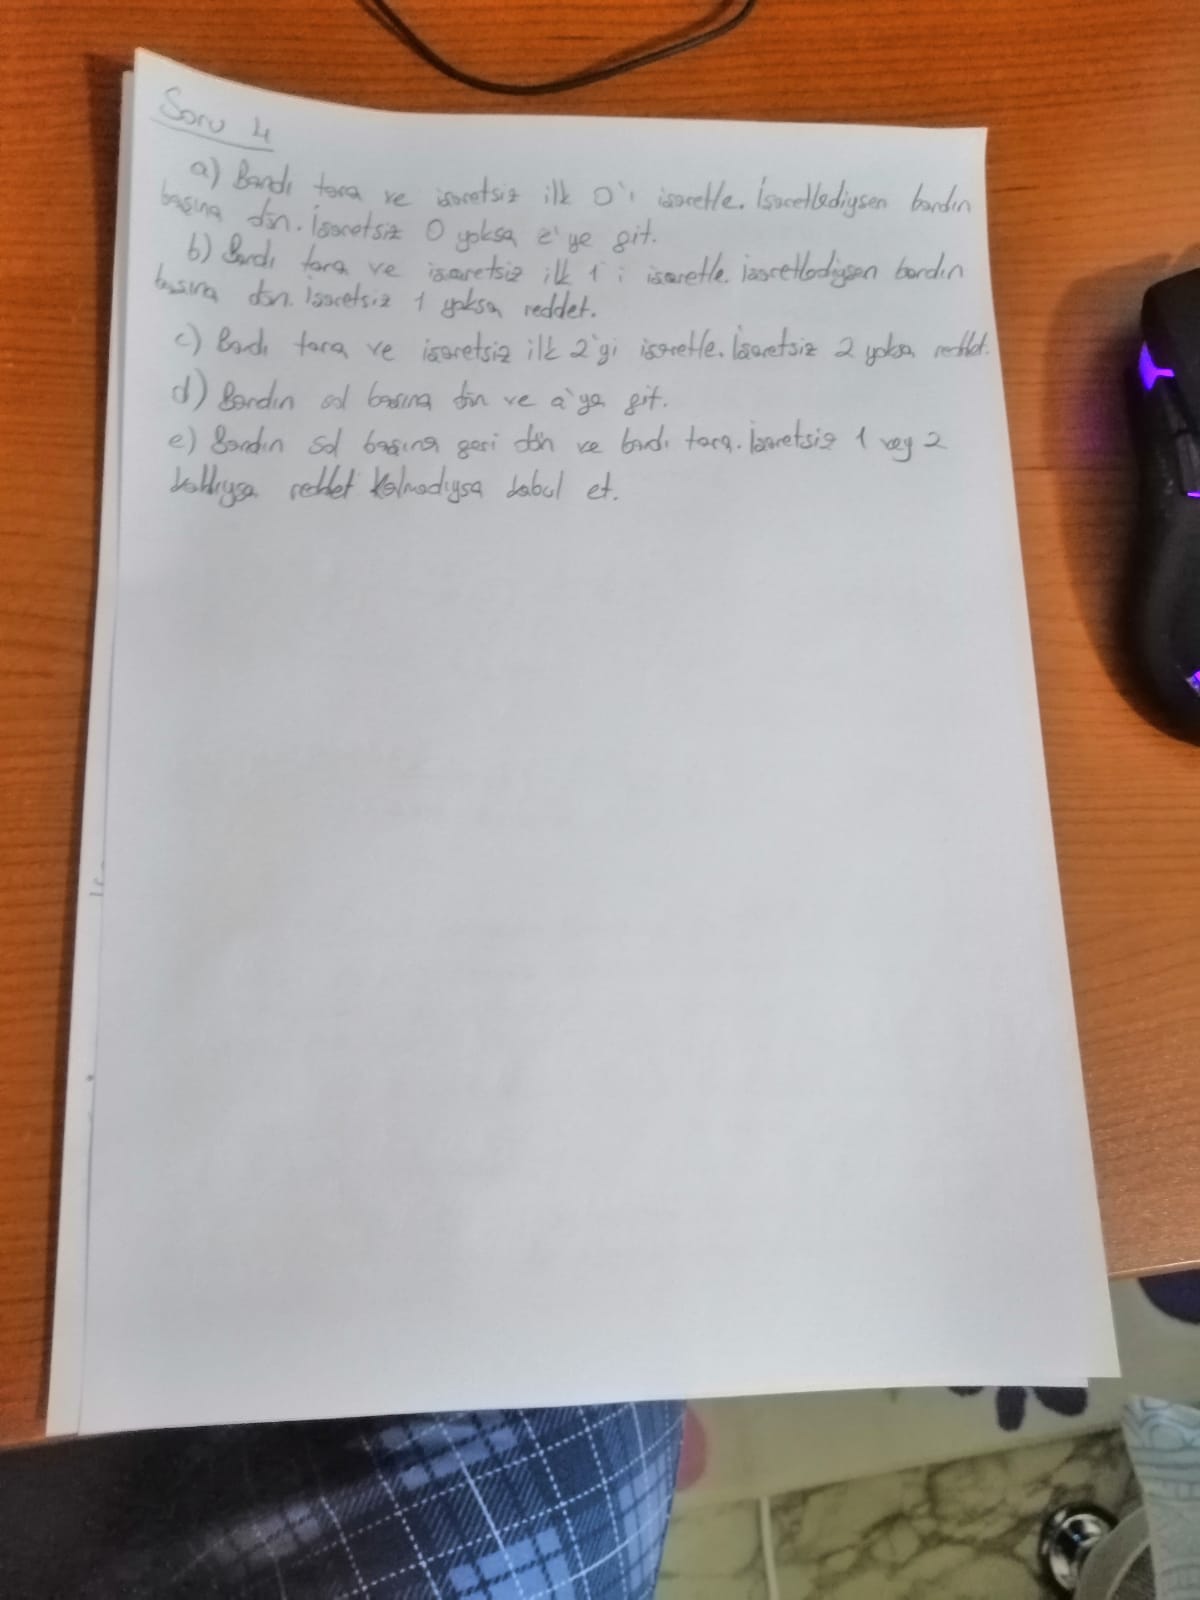 Soru 4
a) Bandı tara ve işaretsiz ilk 0'ı işaretle. İşaretlediysen bandın
başına dön. İşaretsiz 0 yoksa e'ye git.
b) Bandı tara ve işaretsiz ilk 1'i işaretle. İşaretlediysen bandın
başına dön. İşaretsiz 1 yoksa reddet.
c) Bandı tara ve işaretsiz ilk 2'yi işaretle. İşaretsiz 2 yoksa reddet.
d) Bandın sol başına dön ve a'ya git.
e) Bandın sol başına geri dön ve bandı tara. İşaretsiz 1 vey 2
kaldıysa reddet kalmadıysa kabul et.